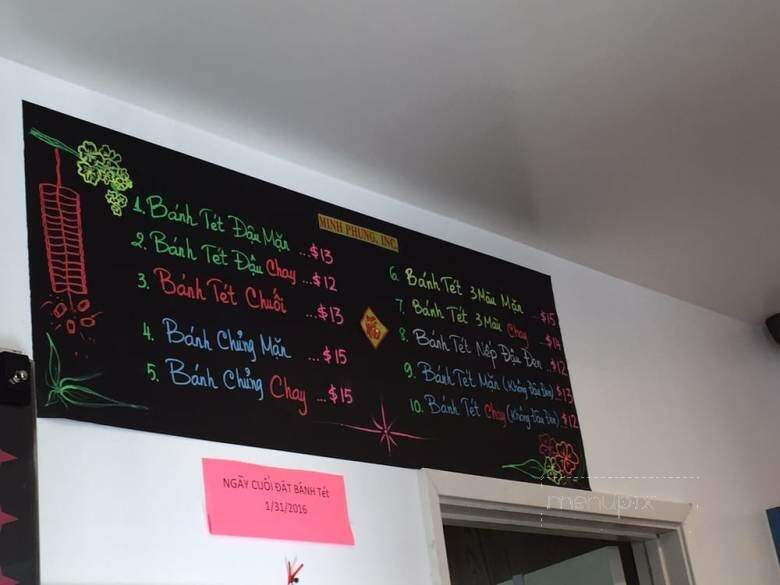 MINH PHUNG, INC.
1. Bánh Tét Đậu Mặn ...$13
2. Bánh Tét Đậu Chay ...$12
3. Bánh Tét Chuối ...$13
4. Bánh Chưng Mặn ...$15
5. Bánh Chưng Chay ...$15
6. Bánh Tét 3 Màu Mặn ...$15
7. Bánh Tét 3 Màu Chay ...$14
8. Bánh Tét Nếp Đậu Đen ...$12
9. Bánh Tét Mặn (Không Đậu Đen) $13
10. Bánh Tét Chay (Không Đậu Đen) $12
NGÀY CUỐI ĐẶT BÁNH Tét
1/31/2016
menupix